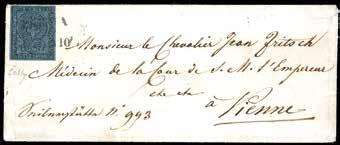 10
Monsieur le Chevalier Jean Fritsch
Médecin de la Cour de S. M. l'Empereur
etc etc
à Vienne
No. 993